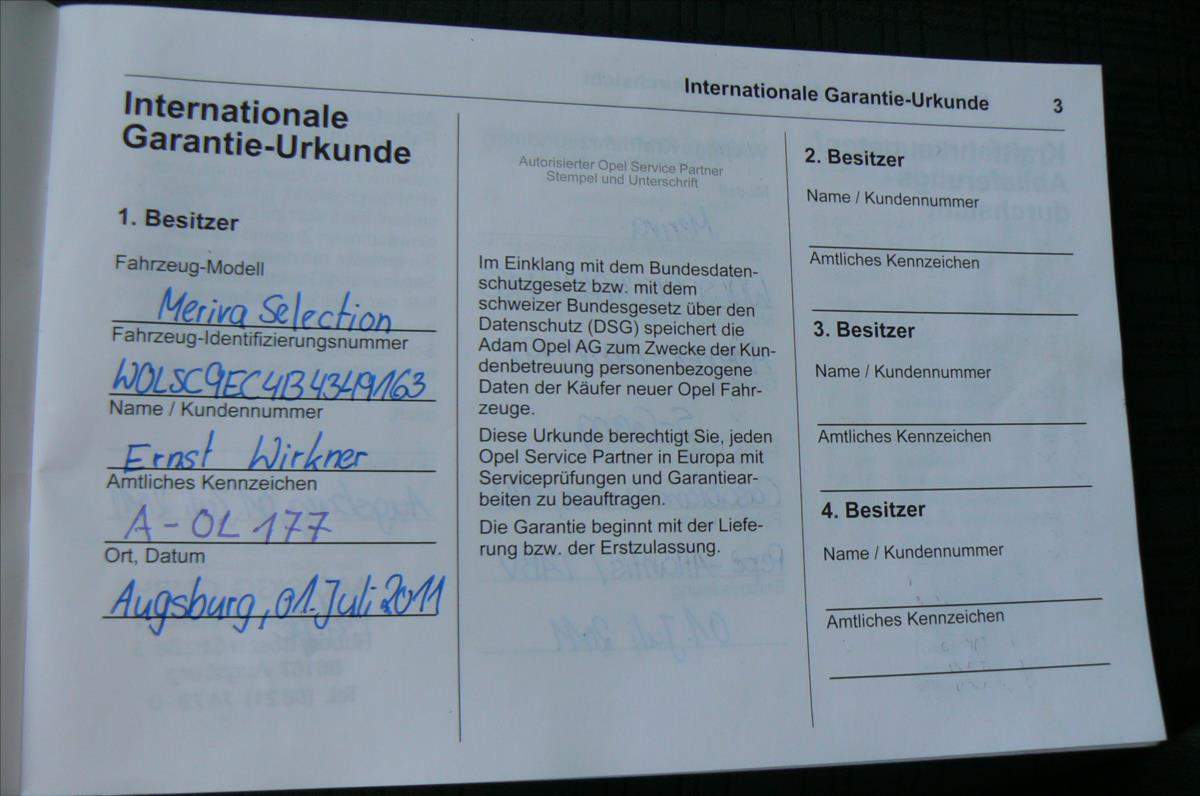 Internationale Garantie-Urkunde 3
Internationale
Garantie-Urkunde
1. Besitzer
Fahrzeug-Modell
Meriva Selection
Fahrzeug-Identifizierungsnummer
WOLSC9EC4B4349163
Name / Kundennummer
Ernst Wirkner
Amtliches Kennzeichen
A - OL 177
Ort, Datum
Augsburg, 01. Juli 2011
Autorisierter Opel Service Partner
Stempel und Unterschrift
Im Einklang mit dem Bundesdaten-
schutzgesetz bzw. mit dem
schweizer Bundesgesetz über den
Datenschutz (DSG) speichert die
Adam Opel AG zum Zwecke der Kun-
denbetreuung personenbezogene
Daten der Käufer neuer Opel Fahr-
zeuge.
Diese Urkunde berechtigt Sie, jeden
Opel Service Partner in Europa mit
Serviceprüfungen und Garantiear-
beiten zu beauftragen.
Die Garantie beginnt mit der Liefe-
rung bzw. der Erstzulassung.
2. Besitzer
Name / Kundennummer
Amtliches Kennzeichen
3. Besitzer
Name / Kundennummer
Amtliches Kennzeichen
4. Besitzer
Name / Kundennummer
Amtliches Kennzeichen